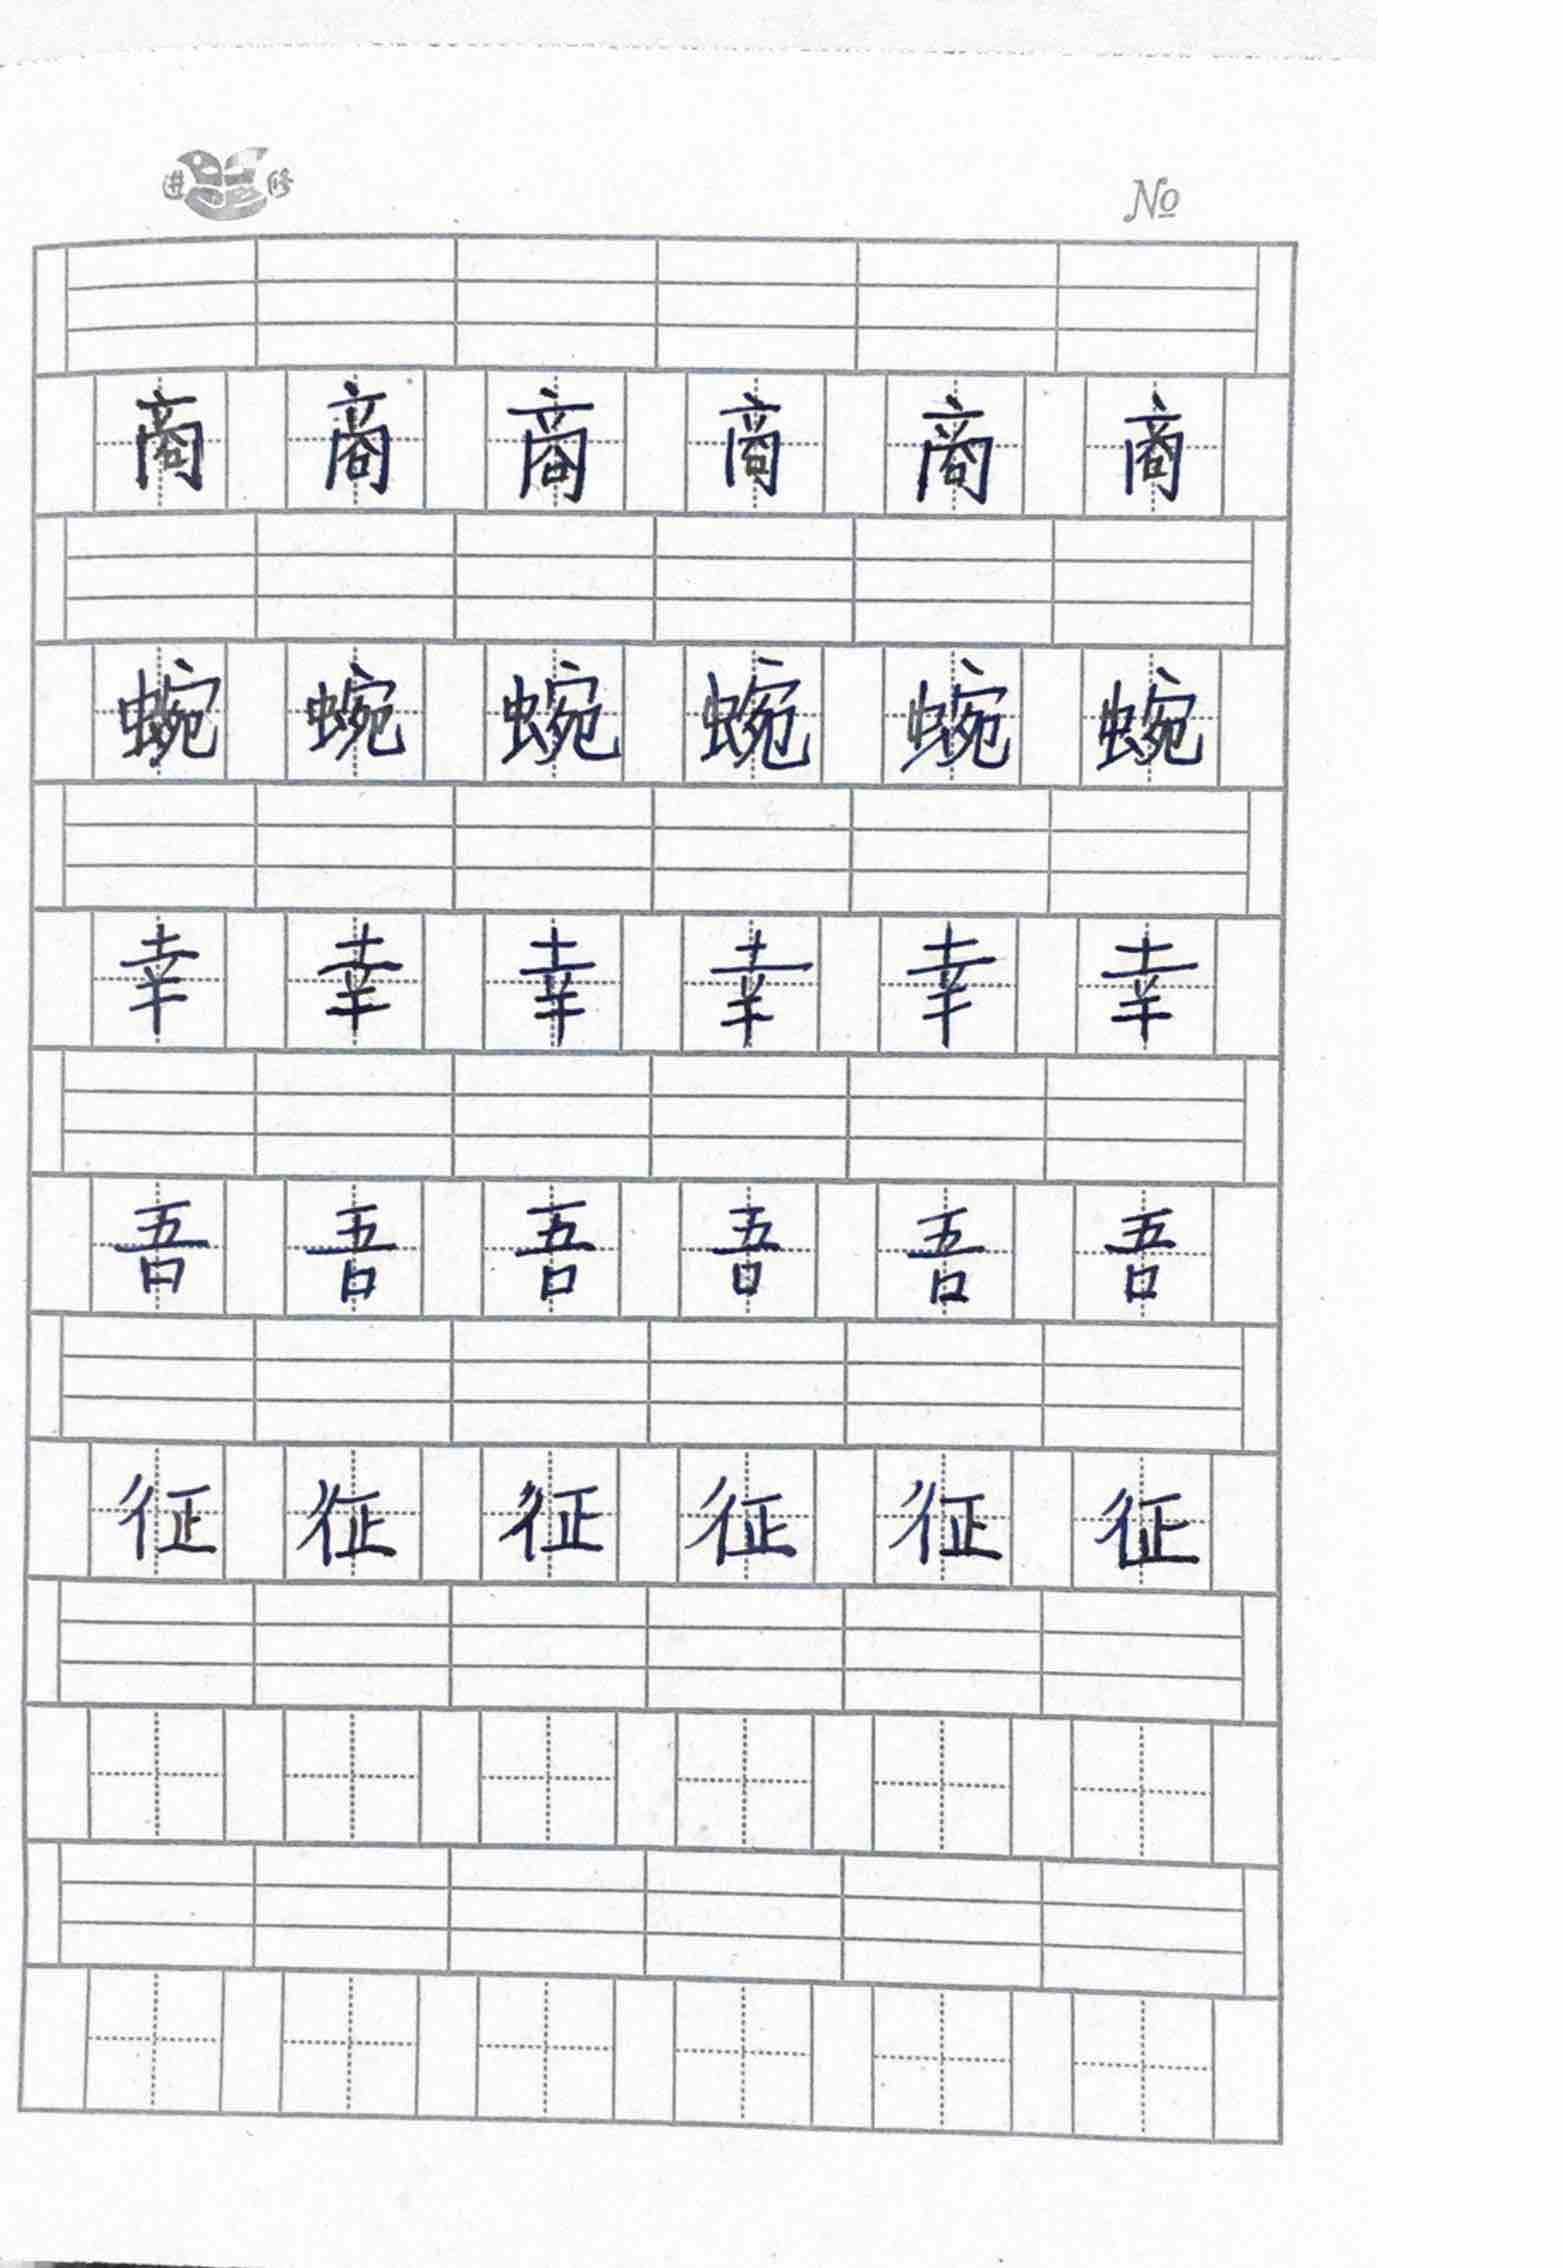 进修
№
商 商 商 商 商 商
蜿 蜿 蜿 蜿 蜿 蜿
幸 幸 幸 幸 幸 幸
吾 吾 吾 吾 吾 吾
征 征 征 征 征 征